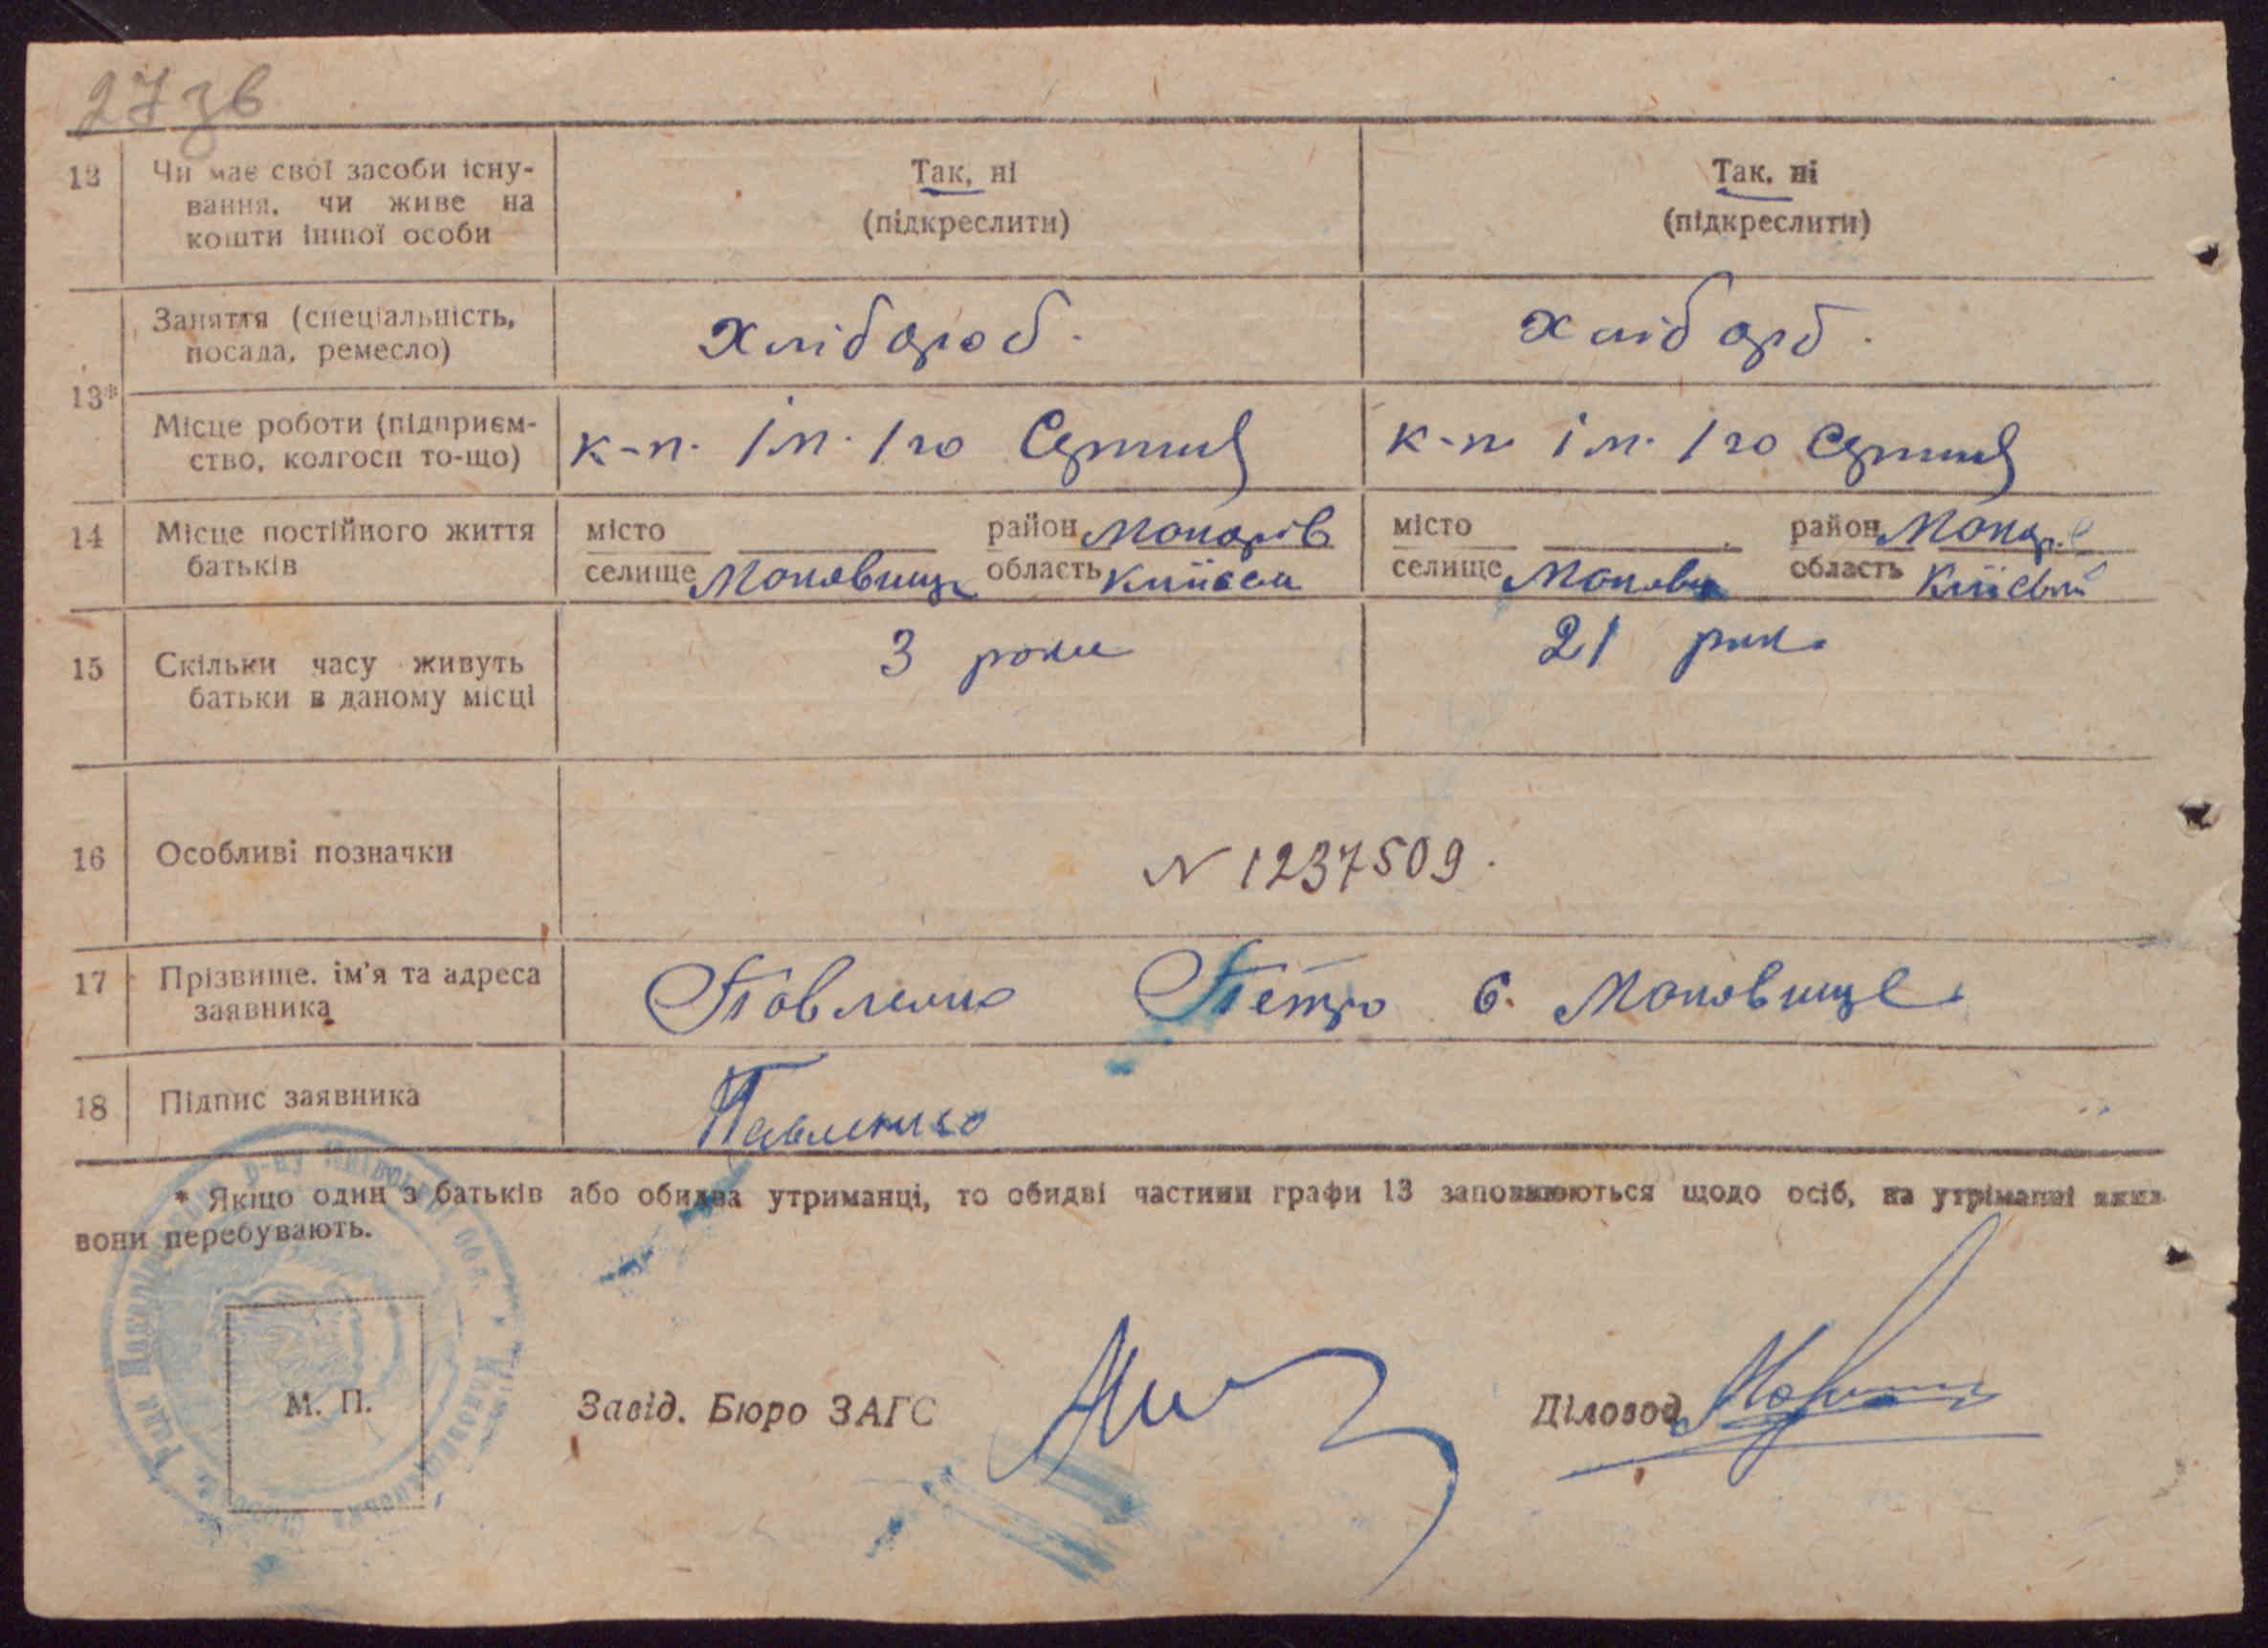 27 зв
12 Чи має свої засоби існу-
вання, чи живе на
кошти іншої особи
Так, ні
(підкреслити)
Так, ні
(підкреслити)
13*
Заняття (спеціальність,
посада, ремесло)
Хлібороб.
Хліборб.
Місце роботи (підприєм-
ство, колгосп то-що)
к-п. ім. 1го Серпня
к-п ім. 1го Серпня
14 Місце постійного життя
батьків
місто район Макарів
селище Маковище область Київськ
місто район Макар.
селище область
15 Скільки часу живуть
батьки в даному місці
3 роки
21 рик
16 Особливі позначки
N 1237509.
17 Прізвище. ім'я та адреса
заявника
Павленко Петро с. Маковище
18 Підпис заявника
Павленко
* Якщо один з батьків або обидва утриманці, то обидві частини графи 13 заповнюються щодо осіб, на утриманні яких
вони перебувають.
М. П.
Завід. Бюро ЗАГС
Діловод